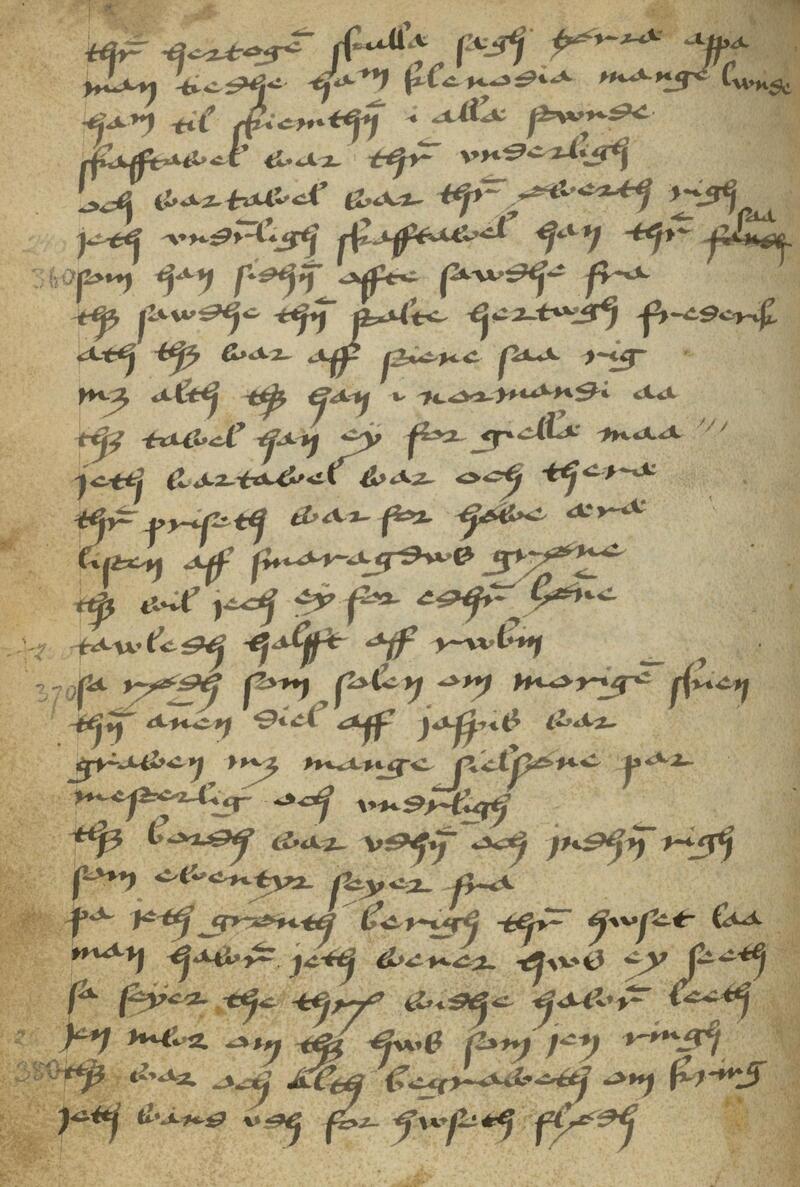 thr̄ hertogē skulla sægh tørræ appa
man tiedhe ham klenodia mange lwnde
ham til skiemthn̄ i allæ stwnde
skafftawel war thr̄ vnderligh
och wartawel war thr̄ øwerth righ
jeth vndr̄ligh skafftawel han thr̄ saa
360 som han sidhn̄ offte sawdhe fra
thꝫ sawdhe thn̄ stalte hertwgh frederik
ath thꝫ war aff stene saa rig
mꝫ alth thꝫ han i normandi aa
thꝫ tawel han ey for giellæ maa
jeth wartawel war och theræ
thr̄ priseth war for howe æræ
listen aff smaragdws grøne
thꝫ wil jech ey for edhr̄ løn̄e
tawledh halfft aff rwbin
370 sa rødh som solen om morigē skien
thn̄ an̄en diel aff jaspis war
grawen mꝫ mange sielsøne par
mesterlig och vndr̄ligh
thꝫ bordh war vdhn̄ och jndhn̄ righ
som ewentyr seyer fra
pa jeth grønth berigh thr̄ hwset laa
man hawr̄ jeth wener hws ey seeth
sa seyer the thr̄ widhe hawr̄ leeth
jen mwr om thꝫ hws som jen ringh
380 thꝫ war och alth begraweth om kring
jeth wand vdh for hwseth flødh